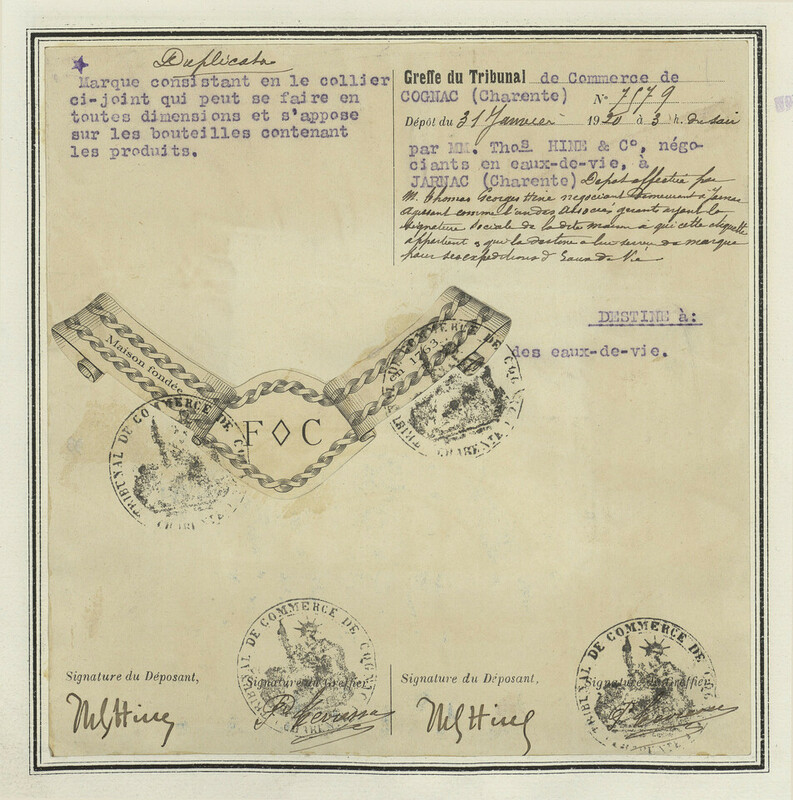 Duplicata
Marque consistant en le collier
ci-joint qui peut se faire en
toutes dimensions et s'appose
sur les bouteilles contenant
les produits.
Greffe du Tribunal de Commerce de
COGNAC (Charente) N° 7579
Dépôt du 31 Janvier 1920 à 3 h. du soir
par MM. Thos HINE & Co, négo-
ciants en eaux-de-vie, à
JARNAC (Charente) Dépot effectué par
M. Thomas Georges Hine négociant demeurant à Jarnac
agissant comme l'un des associés gérants ayant la
signature sociale de la dite maison à qui cette étiquette
appartient & qui la destine à leur servir de marque
pour ses expéditions d'Eaux de Vie
DESTINE à:
des eaux-de-vie.
Maison fondée
1763
F ◊ C
TRIBUNAL DE COMMERCE DE COGNAC
CHARENTE
TRIBUNAL DE COMMERCE DE COGNAC
CHARENTE
Signature du Déposant,
Signature du Greffier,
Signature du Déposant,
Signature du Greffier,
TRIBUNAL DE COMMERCE DE COGNAC
CHARENTE
TRIBUNAL DE COMMERCE DE COGNAC
CHARENTE
Hine
Hine